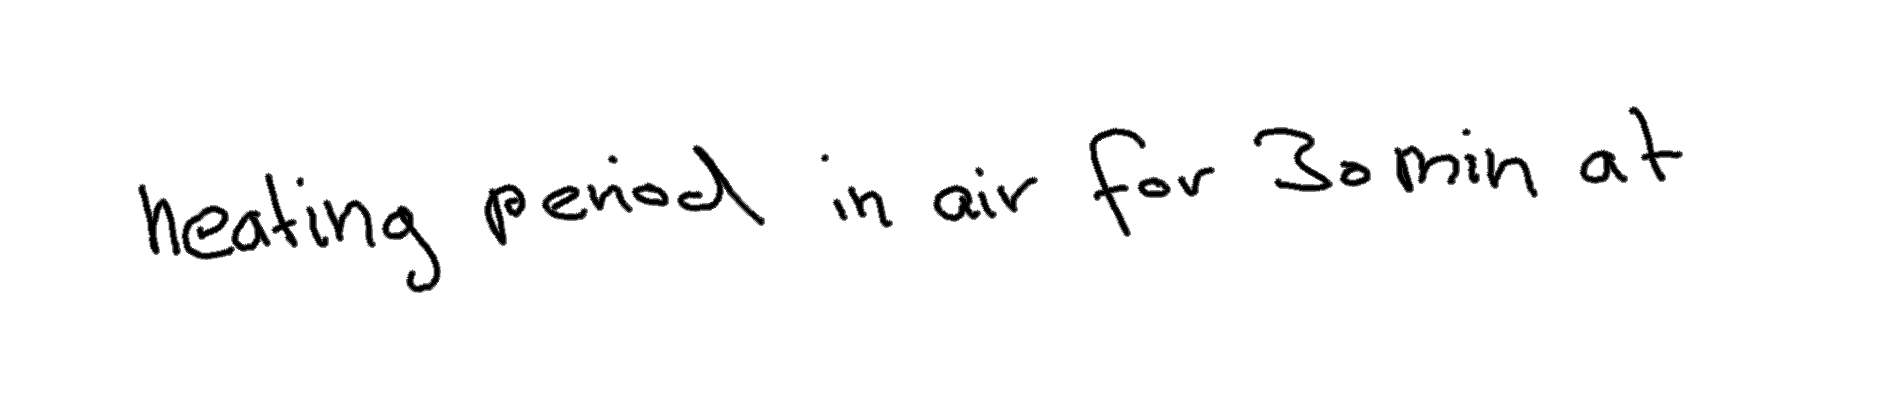 heating period in air for 30 min at